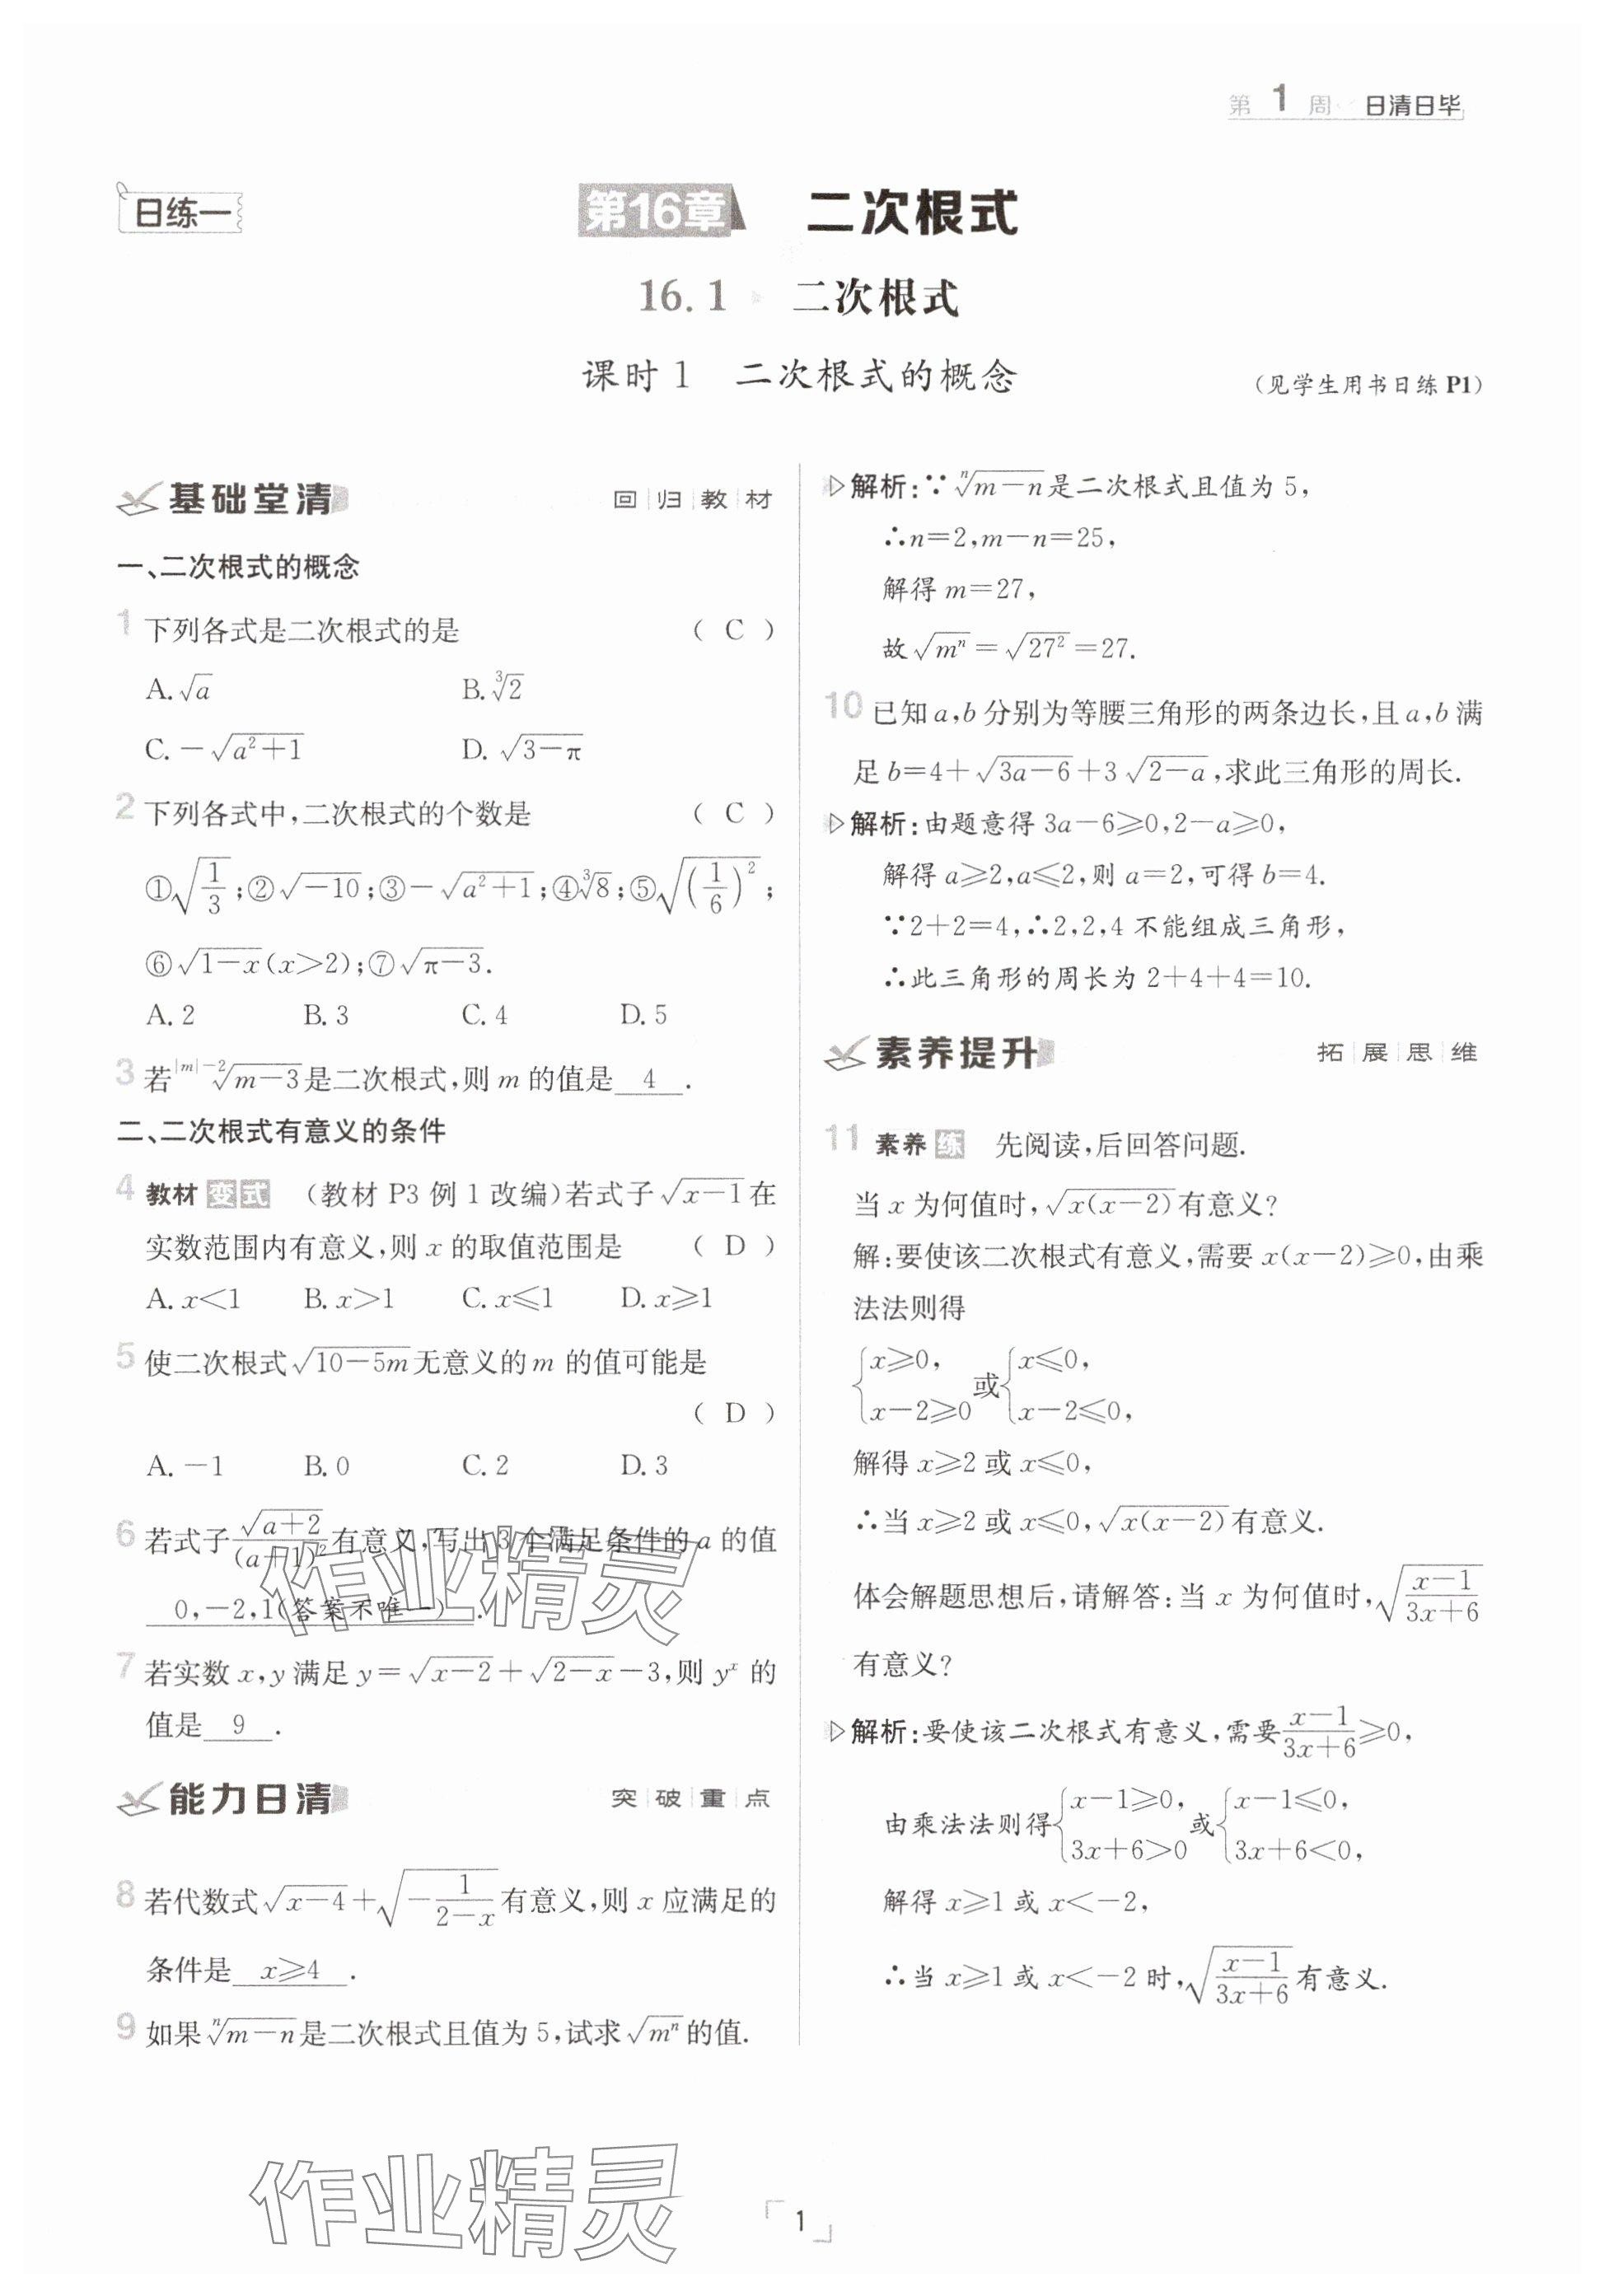 第 1 周 日清日毕
日练一
第16章 二次根式
16.1 二次根式
课时 1 二次根式的概念
(见学生用书日练 P1)
基础堂清 回归教材
一、二次根式的概念
1 下列各式是二次根式的是 ( C )
A. √a B. ∛2
C. −√(a²+1) D. √(3−π)
2 下列各式中,二次根式的个数是 ( C )
①√(1/3);②√(−10);③−√(a²+1);④∛8;⑤√((1/6)²);
⑥√(1−x)(x>2);⑦√(π−3).
A. 2 B. 3 C. 4 D. 5
3 若 ^(|m|−2)√(m−3)是二次根式,则 m 的值是 4 .
二、二次根式有意义的条件
4 教材 变式 (教材 P3 例 1 改编)若式子√(x−1)在
实数范围内有意义,则 x 的取值范围是 ( D )
A. x<1 B. x>1 C. x≤1 D. x≥1
5 使二次根式√(10−5m)无意义的 m 的值可能是
( D )
A. −1 B. 0 C. 2 D. 3
6 若式子√(a+2)/(a+1)²有意义,写出 3 个满足条件的 a 的值
0,−2,1(答案不唯一) .
7 若实数 x,y 满足 y=√(x−2)+√(2−x)−3,则 yˣ 的
值是 9 .
能力日清 突破重点
8 若代数式√(x−4)+√(−1/(2−x))有意义,则 x 应满足的
条件是 x≥4 .
9 如果 ⁿ√(m−n)是二次根式且值为 5,试求√(mⁿ)的值.
解析:∵ ⁿ√(m−n)是二次根式且值为 5,
∴n=2,m−n=25,
解得 m=27,
故√(mⁿ)=√(27²)=27.
10 已知 a,b 分别为等腰三角形的两条边长,且 a,b 满
足 b=4+√(3a−6)+3√(2−a),求此三角形的周长.
解析:由题意得 3a−6≥0,2−a≥0,
解得 a≥2,a≤2,则 a=2,可得 b=4.
∵2+2=4,∴2,2,4 不能组成三角形,
∴此三角形的周长为 2+4+4=10.
素养提升 拓展思维
11 素养 练 先阅读,后回答问题.
当 x 为何值时,√(x(x−2))有意义?
解:要使该二次根式有意义,需要 x(x−2)≥0,由乘
法法则得
{x≥0, x−2≥0 或 {x≤0, x−2≤0,
解得 x≥2 或 x≤0,
∴当 x≥2 或 x≤0,√(x(x−2))有意义.
体会解题思想后,请解答:当 x 为何值时,√((x−1)/(3x+6))
有意义?
解析:要使该二次根式有意义,需要(x−1)/(3x+6)≥0,
由乘法法则得{x−1≥0, 3x+6>0 或 {x−1≤0, 3x+6<0,
解得 x≥1 或 x<−2,
∴当 x≥1 或 x<−2 时,√((x−1)/(3x+6))有意义.
作业精灵
作业精灵
1